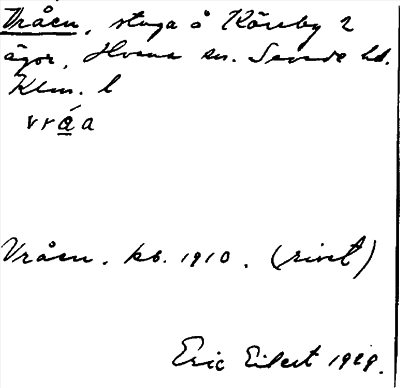 Vråen, stuga å Kåreby 2
ägor, Hvena sn. Sevede hd.
Klm. l
vráa
Vråen. kb. 1910. (rivit)
Eric Eilert 1929.